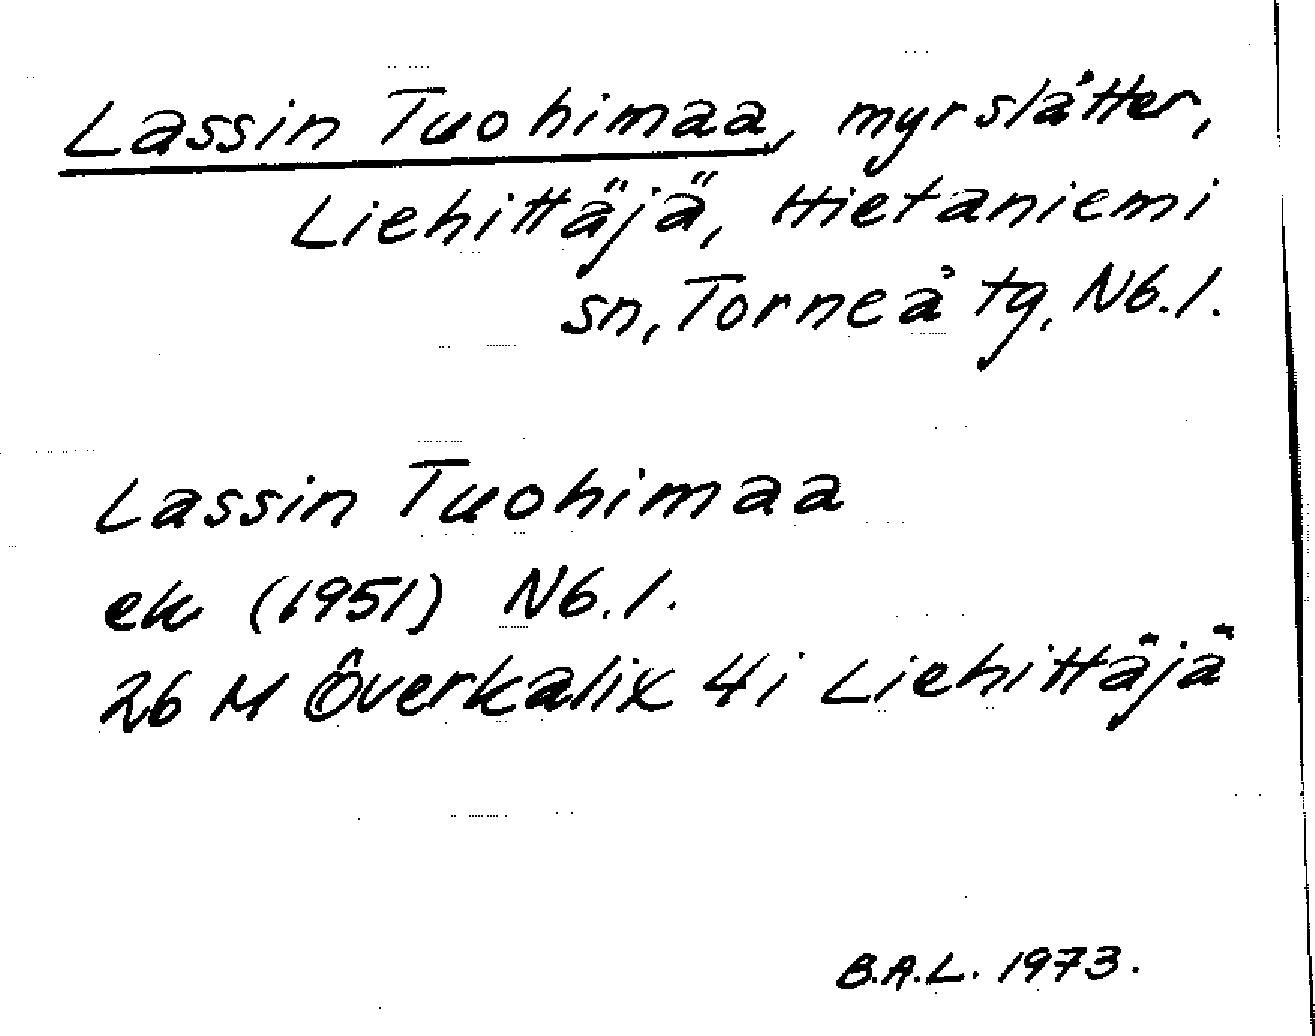 Lassin Tuohimaa, myrslåtter,
Liehittäjä, Hietaniemi
sn, Torneå tg, Nb.l.
Lassin Tuohimaa
ek (1951) Nb.l.
26 M Överkalix 4i Liehittäjä
B.A.L. 1973.